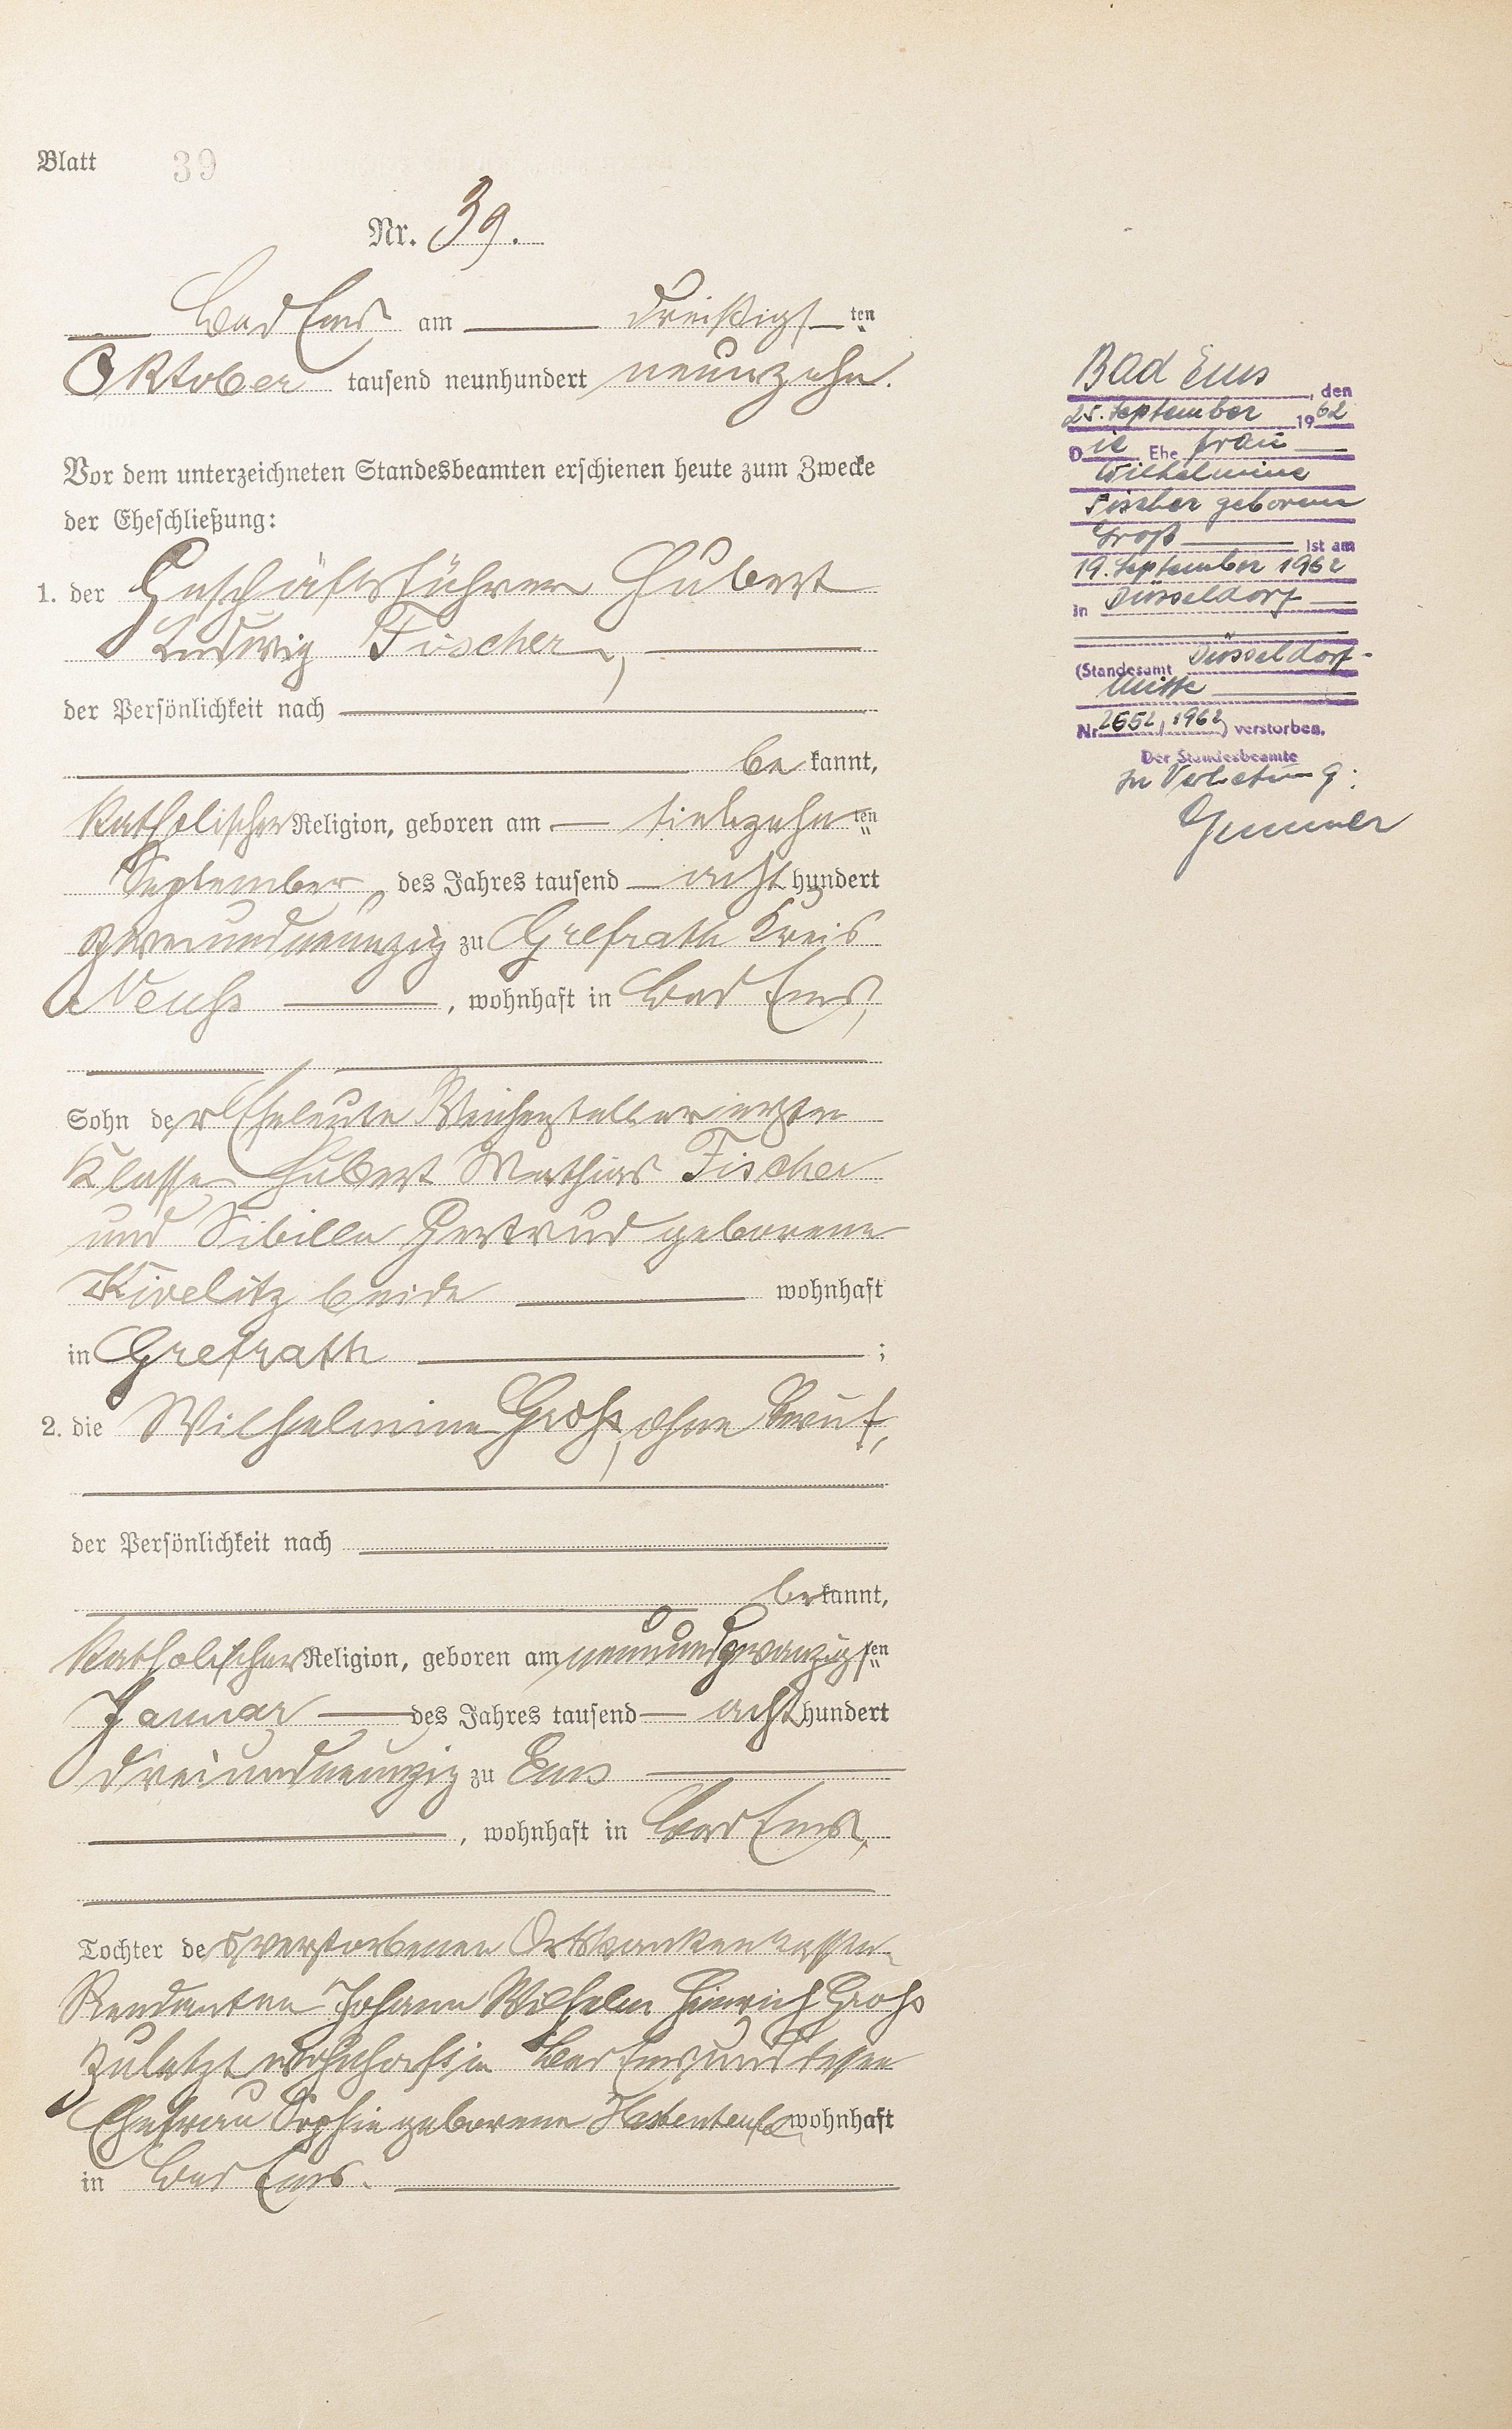 Blatt 39
Nr. 39.
Bad Ems am dreißigsten
Oktober tausend neunhundert neunzehn.
Vor dem unterzeichneten Standesbeamten erschienen heute zum Zwecke
der Eheschließung:
1. der Geschäftsführer Hubert
Ludwig Fischer,
der Persönlichkeit nach
be kannt,
katholischer Religion, geboren am siebzehnten
September des Jahres tausend acht hundert
zweiundneunzig zu Grefrath Kreis
Neuss, wohnhaft in Bad Ems,
Sohn der Eheleute Weichensteller erster
Klasse Hubert Mathias Fischer
und Sibilla Gertrud geborene
Kivelitz beide wohnhaft
in Grefrath ;
2. die Wilhelmine Groß, ohne Beruf,
der Persönlichkeit nach
be kannt,
katholischer Religion, geboren am neunundzwanzigsten
Januar des Jahres tausend acht hundert
dreiundneunzig zu Ems
, wohnhaft in Bad Ems,
Tochter des verstorbenen Ortskrankenkassen-
Rendanten Johann Wilhelm Heinrich Groß
zuletzt wohnhaft in Bad Ems und dessen
Ehefrau Sophie geborene wohnhaft
in Bad Ems.
Bad Ems, den
25. September 1962
Die Ehefrau
Wilhelmine
Fischer geborene
Groß ist am
19. September 1962
in Düsseldorf
(Standesamt Düsseldorf-
Mitte
Nr 2652/1962) verstorben.
Der Standesbeamte
In Vertretung: